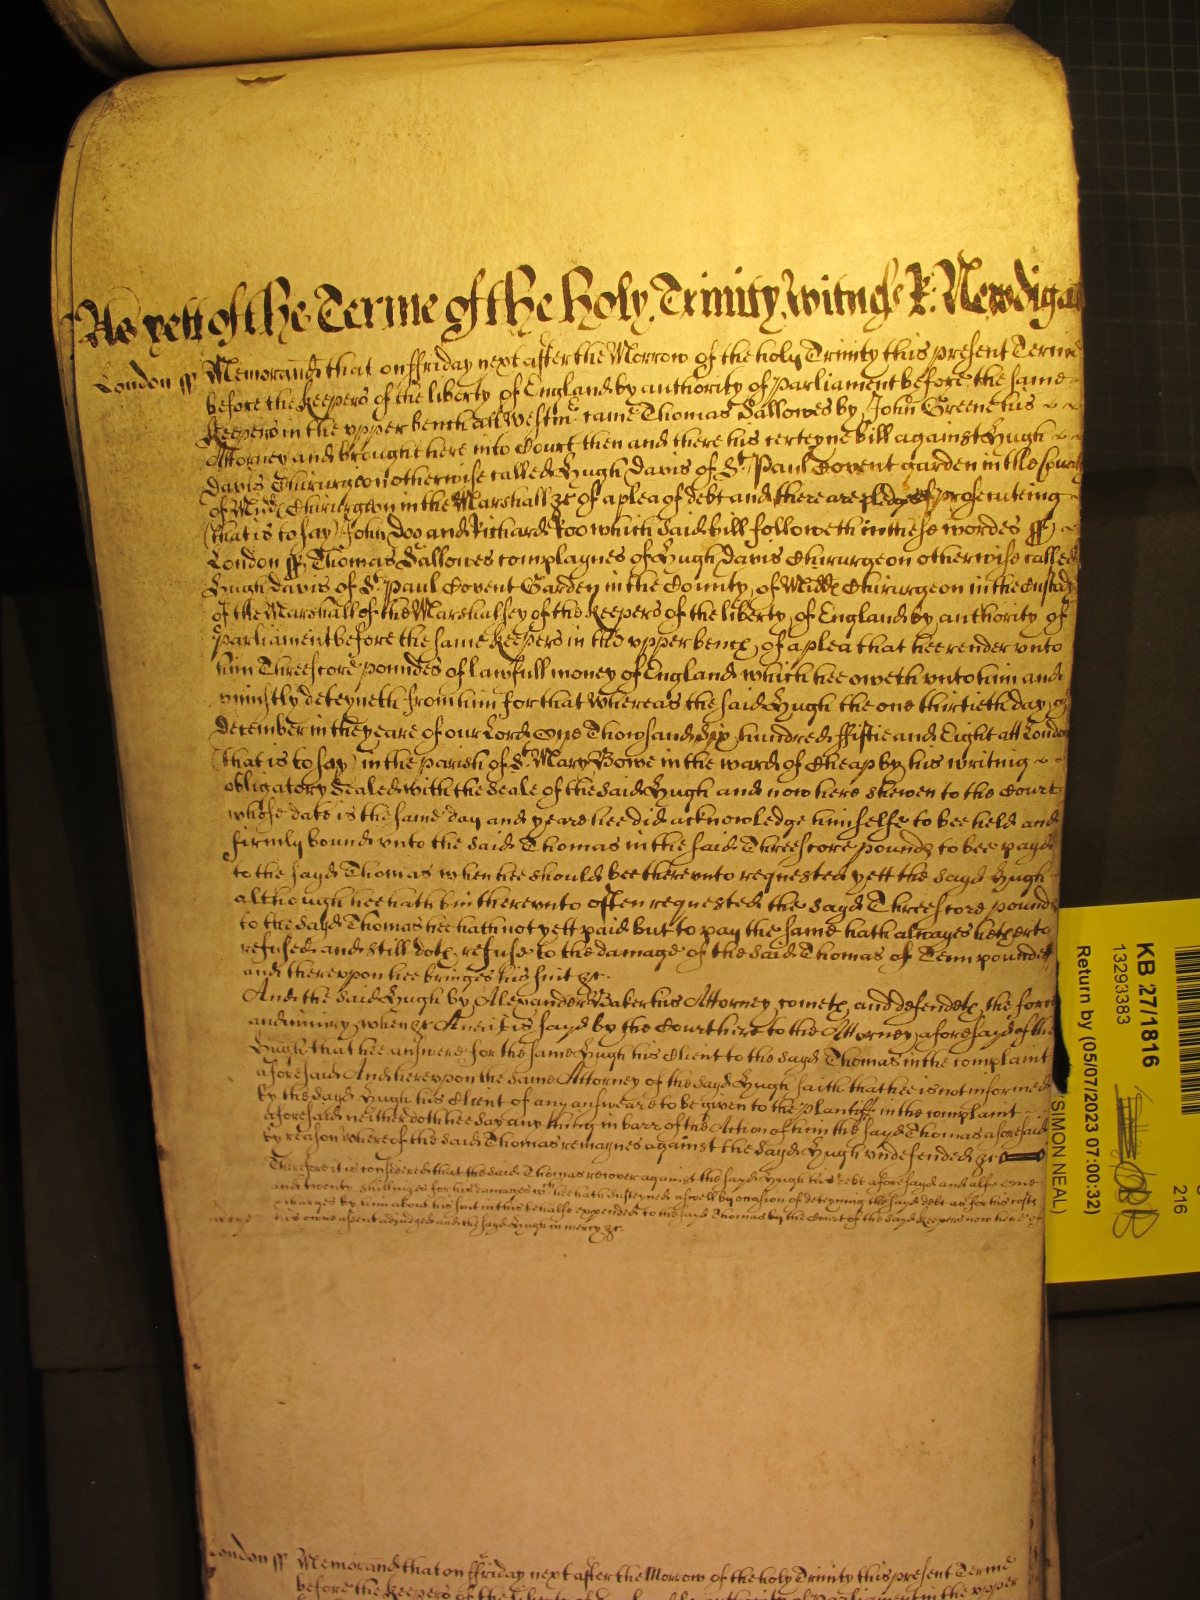 As yett of the Terme of the holy Trinity witnes R: Newdigat
London ss Memorand that on ffriday next after the Morrow of the holy Trinity this present Terme
before the keepers of the liberty of England by authority of Parliament before the same
keepers in the upper bench att Westmr came Thomas Sallowes by John Greene his
Attorney and brought here into Court then and there his certeyne bill against Hugh
Davis Chirurgeon otherwise called Hugh Davis of St Paul Covent garden in the County
of Midd Chirurgeon in the Marshall &c of a plea of debt and there are pledges of prosecuteing
(that is to say) John Doo and Richard Roo which said bill followeth in these wordes ss
London ss Thomas Sallowes complaynes of Hugh Davis Chirurgeon otherwise called
Hugh Davis of St Paul Covent Garden in the County of Midd Chirurgeon in the Custody
of the Marshall of the Marshalsey of the keepers of the liberty of England by authority of
Parliament before the same keepers in the upper bench of a plea that hee render unto
him Threescore poundes of lawfull money of England which hee oweth unto him and
uniustly deteyneth from him for that whereas the said Hugh the one thirtieth day of
December in the yeare of our Lord One Thowsand Six hundred ffiftie and Eight att London
(that is to say) in the parish of St Mary Bowe in the ward of Cheap by his writing
obligatory Sealed with the Seale of the said Hugh and now here shewen to the Court
whose date is the same day and yeare hee did acknowledge himselfe to bee held and
firmly bound unto the said Thomas in the said Threescore pounds to bee payd
to the sayd Thomas when hee should bee thereunto requested yett the sayd Hugh
although hee hath bin thereunto often requested the sayd Threescore pound
to the sayd Thomas hee hath not yett paid but to pay the same hath alwayes hitherto
refused and still doth refuse to the damage of the said Thomas of Tenn pounde
and thereupon hee bringes his suit &c
And the said Hugh by Alexander Baker his Attorney cometh and defendeth the force
and iniury when &c And it is sayd by the Court here to the Attorney aforesayd of the
Hugh that hee answere for the same Hugh his Client to the sayd Thomas in the complaint
aforesaid And hereupon the same Attorney of the sayd Hugh saith that hee is not informed
by the sayd Hugh his Client of any answeare to be given to the plantiff in the complaint
aforesaid neither doth hee say any thing in barr of the Action of him the sayd Thomas aforesaid
by reason whereof the said Thomas remaynes against the sayd Hugh undefended &c
Therefore it is considered that the said Thomas recover against the sayd Hugh his debt aforesayd and alsoe One
and twenty shillinges for his damages wch hee hath susteyned aswell by occasion of deteyning the sayd debt as for his costs
charges by him about his suit in this behalfe expended to the sayd Thomas by the Court of the sayd keepers now here of
his owne assent adjudged and the sayd Hugh in mercy &c
London ss Memorand that on ffriday next after the Morrow of the holy Trinity this present Terme
before the keepers of the liberty of England by authority of Parliament in the upper
KB 27/1816
13293383
Return by (05/07/2023 07:00:32)
(SIMON NEAL)
216